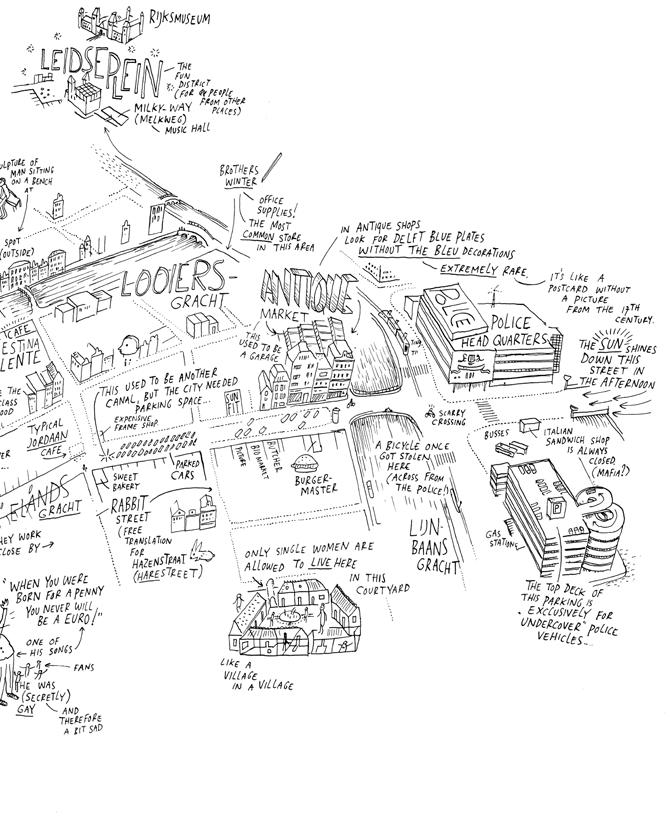 RIJKSMUSEUM
LEIDSEPLEIN
THE
FUN
DISTRICT
(FOR PEOPLE
FROM OTHER
PLACES)
MILKY-WAY
(MELKWEG)
MUSIC HALL
SCULPTURE OF
MAN SITTING
ON A BENCH
AT
SPOT
(OUTSIDE)
BROTHERS
WINTER
OFFICE
SUPPLIES!
THE MOST
COMMON STORE
IN THIS AREA
IN ANTIQUE SHOPS
LOOK FOR DELFT BLUE PLATES
WITHOUT THE BLEU DECORATIONS
EXTREMELY RARE.
IT'S LIKE A
POSTCARD WITHOUT
A PICTURE
FROM THE 17TH
CENTURY.
LOOIERS-
GRACHT
ANTIQUE
MARKET
THIS
USED TO BE
A GARAGE
POLICE
HEAD QUARTERS
THE SUN SHINES
DOWN THIS
STREET IN
THE AFTERNOON
CAFE
ESTINA
LENTE
THE
CLASS
OOD
THIS USED TO BE ANOTHER
CANAL, BUT THE CITY NEEDED
PARKING SPACE...
EXPENSIVE
FRAME SHOP
SUN
FIT
SCARRY
CROSSING
TYPICAL
JORDAAN
CAFE
BUSSES
ITALIAN
SANDWICH SHOP
IS ALWAYS
CLOSED
(MAFIA?)
SWEET
BAKERY
PARKED
CARS
BIOMARKET
BUTCHER
BURGER-
MASTER
A BICYCLE ONCE
GOT STOLEN
HERE
(ACROSS FROM
THE POLICE!)
ELANDS
GRACHT
RABBIT
STREET
(FREE
TRANSLATION
FOR
HAZENSTRAAT
(HARESTREET)
LIJN-
BAANS
GRACHT
GAS
STATION
HEY WORK
CLOSE BY
ONLY SINGLE WOMEN ARE
ALLOWED TO LIVE HERE
IN THIS
COURTYARD
THE TOP DECK OF
THIS PARKING IS
EXCLUSIVELY FOR
"UNDERCOVER" POLICE
VEHICLES...
"WHEN YOU WERE
BORN FOR A PENNY
YOU NEVER WILL
BE A EURO!"
ONE OF
HIS SONGS
FANS
HE WAS
(SECRETLY)
GAY
AND
THEREFORE
A BIT SAD
LIKE A
VILLAGE
IN A VILLAGE